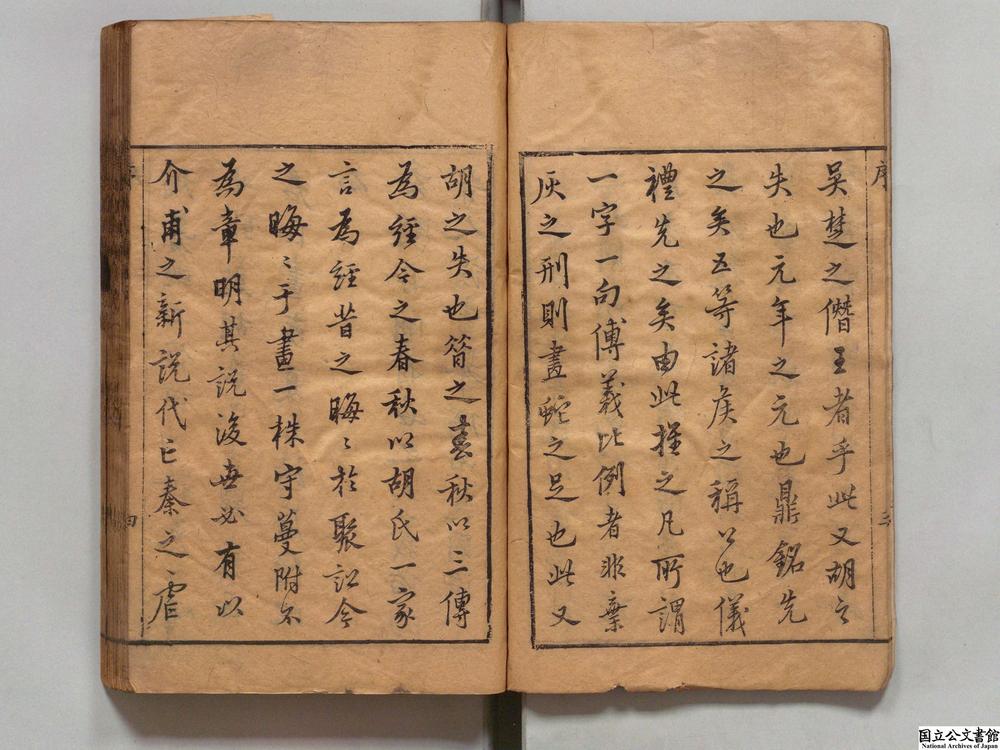 序
三
吳楚之僭王者乎此又胡之
失也元年之元也鼎銘先
之矣五等諸矦之稱公也儀
禮先之矣由此推之凡所謂
一字一句傅義比例者非棄
灰之刑則畫蛇之足也此又
胡之失也昔之春秋以三傳
為經今之春秋以胡氏一家
言為經昔之晦〻於聚訟今
之晦〻于畫一株守蔓附不
為章明其說後世必有以
介甫之新說代亡秦之虐
四
国立公文書館
National Archives of Japan